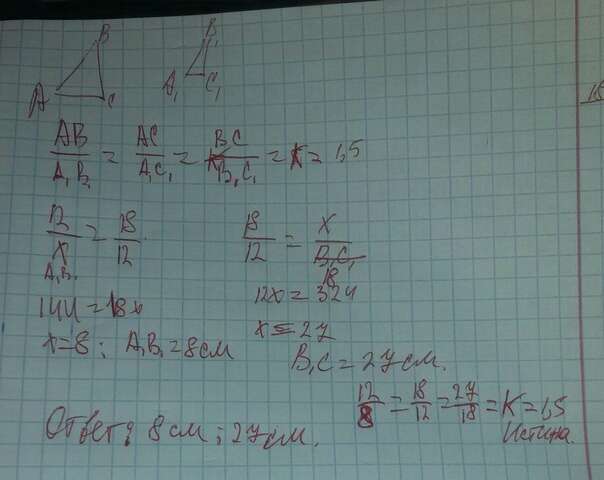 B
A
C
B₁
A₁
C₁
AB/A₁B₁ = AC/A₁C₁ = BC/B₁C₁ = K = 1,5
12/x = 18/12
A₁B₁
144 = 18x
x = 8; A₁B₁ = 8 см
18/12 = x/18
12x = 324
x = 27
B₁C = 27 см.
12/8 = 18/12 = 27/18 = K = 1,5
Истина.
Ответ: 8 см; 27 см.
15